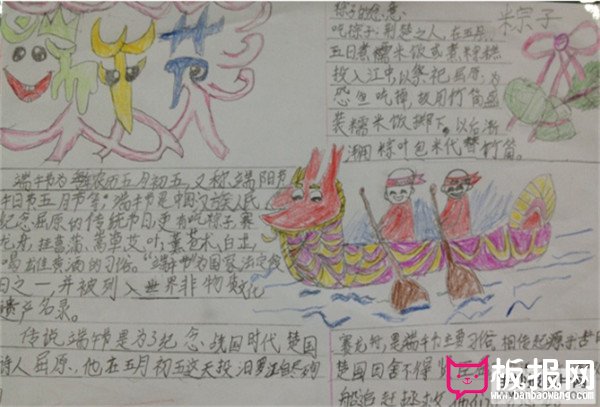 端午节
粽子
粽子的意
吃粽子:荆楚之人,在五月
五日煮糯米饭或蒸粽糕
投入江中,以祭祀屈原,为
恐 吃掉,故用竹筒盛
装糯米饭掷下,以后渐
用粽叶包米代替竹筒。
端午节为 农历五月初五,又称端阳节
午日节、五月节等。端午节是中国汉族人民
纪念屈原的传统节日,更有吃粽子,赛
龙舟,挂菖蒲、蒿草、艾叶,薰苍术、白芷,
喝雄黄酒的习俗。"端午节"为国家法定
日之一,并被列入世界非物质文化
遗产名录。
传说端午节是为了纪念战国时代楚国
诗人屈原,他在五月初五这天投汨罗江自尽
赛龙舟,是端午节主要习俗。相传起源于古
楚国因舍不得贤臣
船追赶拯救
板报网
www.banbaowang.com